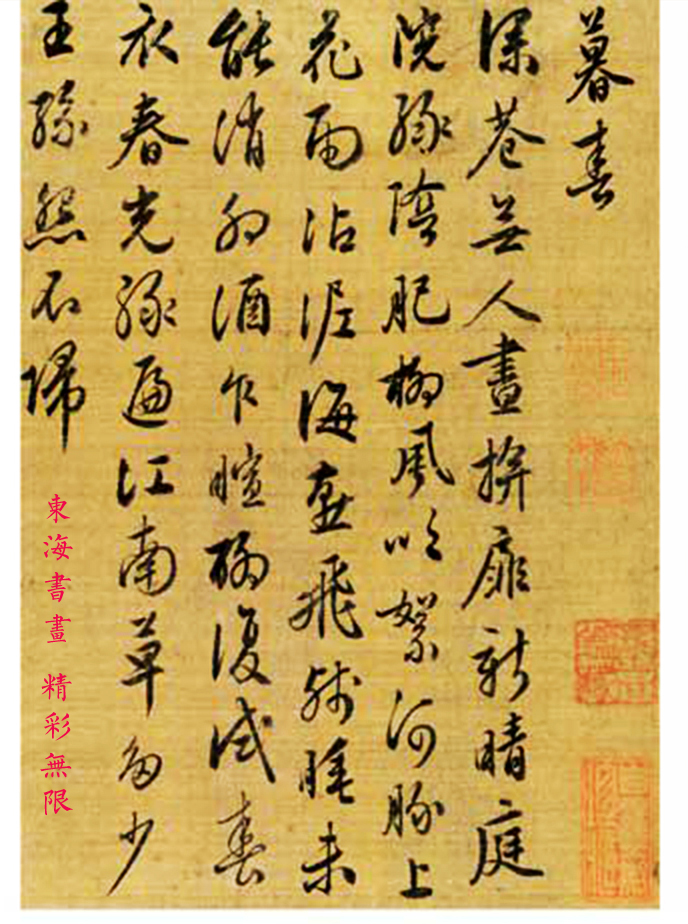 暮春
深巷無人晝掩扉新晴庭
院綠陰肥柳風吹絮河豚上
花雨沾泥海燕飛殘睡未
能消卯酒乍暄聊復試春
衣春光綠遍江南草多少
王孫怨不歸
東海書畫 精彩無限